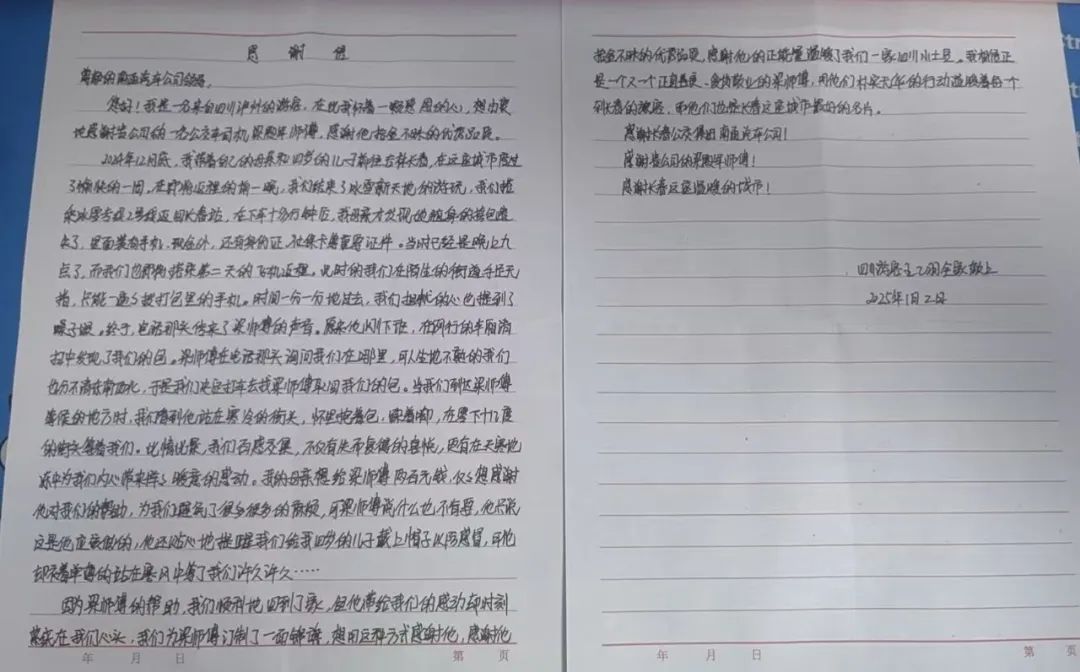 感谢信
尊敬的南亚汽车公司领导:
您好!我是一名来自四川泸州的游客,在此我怀着一颗感恩的心,想由衷
地感谢贵公司的一名公交车司机梁师傅,感谢他拾金不昧的优秀品质。
2024年12月底,我带着自己的母亲和四岁的儿子前往吉林长春,在这座城市度过
了愉快的一周。在即将返程的前一晚,我们结束了冰雪新天地的游玩,我们搭
乘冰雪专线2号线返回长春站,在下车十多分钟后,我母亲才发现她随身的挎包遗
失了,里面装有手机、现金外,还有身份证、社保卡等重要证件。当时已经是晚上九
点了,而我们也即将搭乘第二天的飞机返程。此时的我们在陌生的街道手足无
措,只能一遍多拨打包里的手机。时间一分一分地过去,我们担忧的心也提到了
嗓子眼。终于,电话那头传来了梁师傅的声音。原来他刚下班,在例行的车厢清
扫中发现了我们的包。梁师傅在电话那头询问我们在哪里,可人生地不熟的我们
也分不清东南西北,于是我们决定打车去找梁师傅取回我们的包。当我们到达梁师傅
等候的地方时,我们看到他站在寒冷的街头,怀里抱着包,跺着脚,在零下十几度
的街头等着我们。此情此景,我们百感交集,不仅有失而复得的喜悦,更有在天寒地
冻中为我们内心带来阵阵暖意的感动。我的母亲想给梁师傅两百元钱,仅仅想感谢
他对我们的帮助,为我们避免了很多很多的麻烦,可梁师傅说什么也不肯要,他只说
这是他应该做的,他还贴心地提醒我们给我四岁的儿子戴上帽子以防感冒,可他
却衣着单薄的站在寒风中等了我们许久许久……
因为梁师傅的帮助,我们顺利地回到了家,但他带给我们的感动却时刻
萦绕在我们心头,我们为梁师傅订制了一面锦旗,想用这种方式感谢他,感谢他
年 月 日 第 页
拾金不昧的优秀品质,感谢他的正能量温暖了我们一家四川小土豆。我相信正
是一个又一个正直善良、爱岗敬业的梁师傅,用他们朴实无华的行动温暖着每一个
到长春的旅客,而他们也是长春这座城市最好的名片。
感谢长春公交集团南亚汽车公司!
感谢贵公司的梁师傅!
感谢长春这座温暖的城市!
四川游客 全家敬上
2025年1月2日
年 月 日 第 页